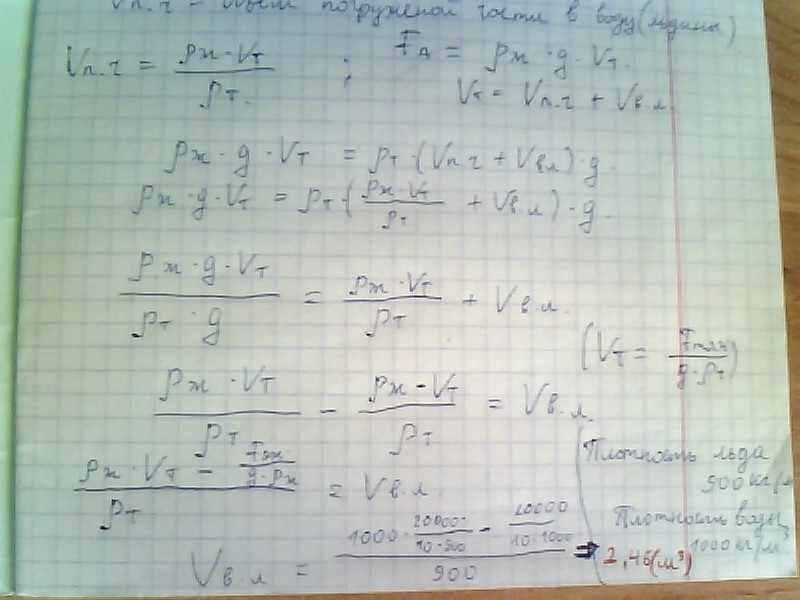 Vп.ч - объём погруженой части в воду (льдины)
Vп.ч = ρж·Vт / ρт. ; Fд = ρж·g·Vт.
Vт = Vп.ч + Vв.л
ρж·g·Vт = ρт·(Vп.ч + Vвл)·g.
ρж·g·Vт = ρт·(ρж·Vт / ρт + Vв.л)·g.
ρж·g·Vт / ρт·g = ρж·Vт / ρт + Vв.л.
(Vт = Fтяж / g·ρт)
ρж·Vт / ρт - ρж-Vт / ρт = Vв.л.
ρж·Vт - Fтяж / g·ρж / ρт = Vв.л
Плотность льда
900 кг/м
Плотность воды
1000 кг/м³
Vв.л = 1000·20000 / 10·900 - 20000 / 10·1000 / 900 ⇒ 2,46(м³)